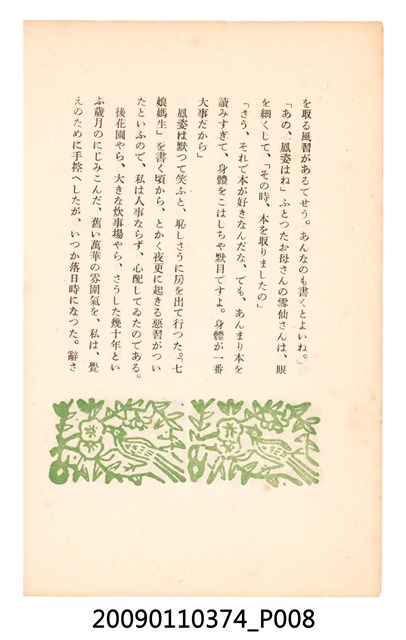 を取る風習があるでせう。あんなのも書くとよいね。」
「あの、鳳姿はね」ふとつたお母さんの雪仙さんは、眼
を細くして、「その時、本を取りましたの」
「さう、それで本が好きなんだな、でも、あんまり本を
讀みすぎて、身體をこはしちや默目ですよ。身體が一番
大事だから」
鳳姿は默つて笑ふと、恥しさうに房を出て行つた。「七
娘媽生」を書く頃から、とかく夜更に起きる惡習がつい
たといふので、私は人事ならず、心配してゐたのである。
後花園やら、大きな炊事場やら、さうした幾十年とい
ふ歳月のにじみこんだ、舊い萬華の雰圍氣を、私は、覺
えのために手控へしたが、いつか落日時になつた。辭さ
20090110374_P008